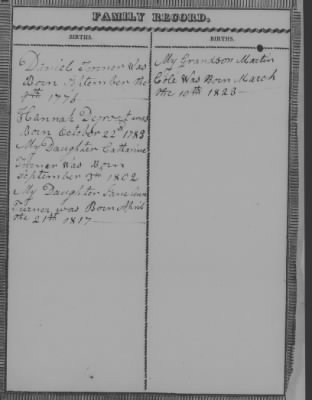 FAMILY RECORD.
BIRTHS.
Daniel Torner Was
Born September the
9th 1776
Hannah was
Born October 22th 1783
My Daughter Catharine
Torner Was Born
September 3th 1802
My Daughter
Turner was Born April
the 21th 1817
BIRTHS.
My Grandson Martin
Cole Was Born March
the 10th 1823